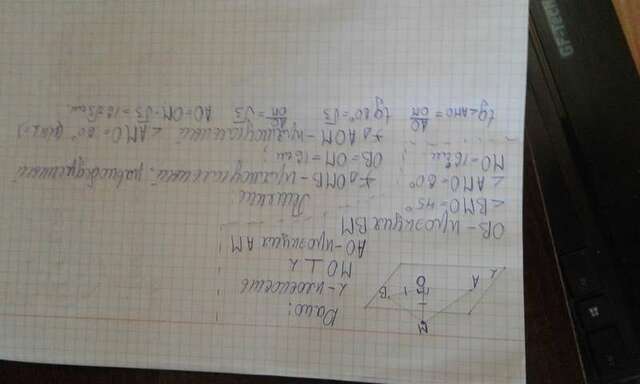 Дано:
α - плоскость
MO ⊥ α
AO - проекция AM
OB - проекция BM
∠BMO = 45°
∠AMO = 60°
MO = 16 см
Решение:
△OMB - прямоугольный, равнобедренный
OB = OM = 16 см
△AOM - прямоугольный ∠AMO = 60°
tg∠AMO = AO/OM tg 60° = √3 AO/OM = √3 AO = OM·√3 = 16√3 см.
M
B
O
A
α
GF-TECH